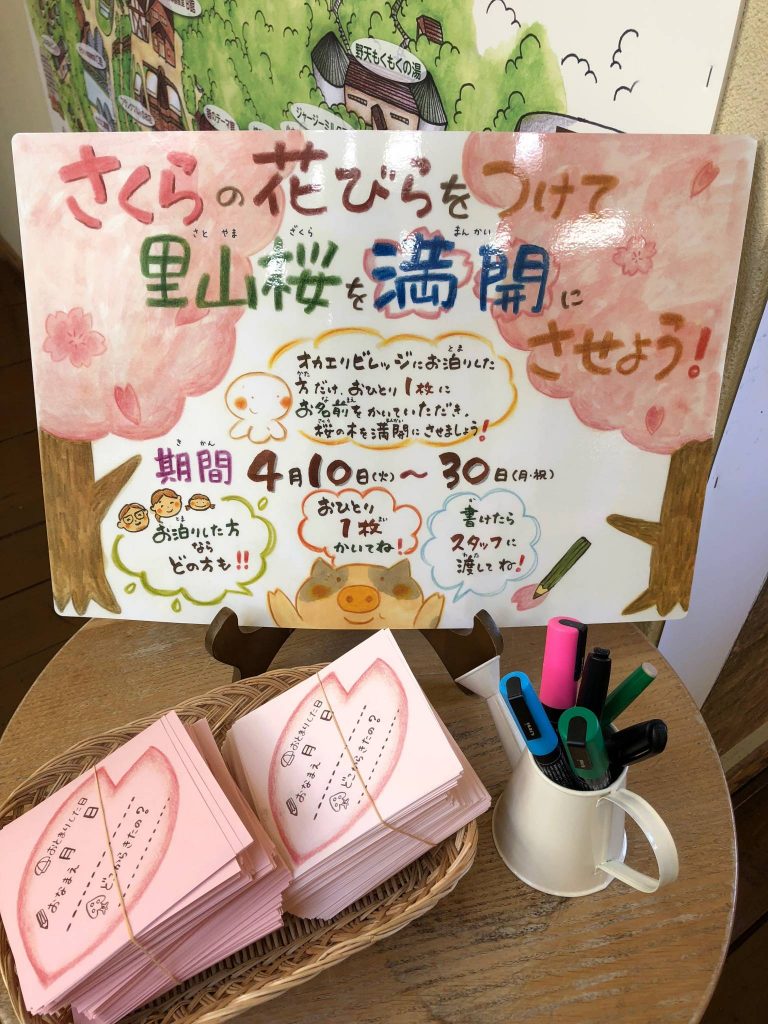 野天もくもくの湯
さくらの花びらをつけて
さと やま ざくら まんかい
里山桜を満開に
させよう!
オカエリビレッジにお泊りした
方だけ、おひとり1枚に
お名前をかいていただき、
桜の木を満開にさせましょう!
きかん
期間 4月10日(火)〜30日(月・祝)
お泊りした方
なら
どの方も!!
おひとり
1枚
かいてね!
書けたら
スタッフに
渡してね!
おとまりした日
月 日
おなまえ
どこからきたの?
おとまりした日
月 日
おなまえ
どこからきたの?